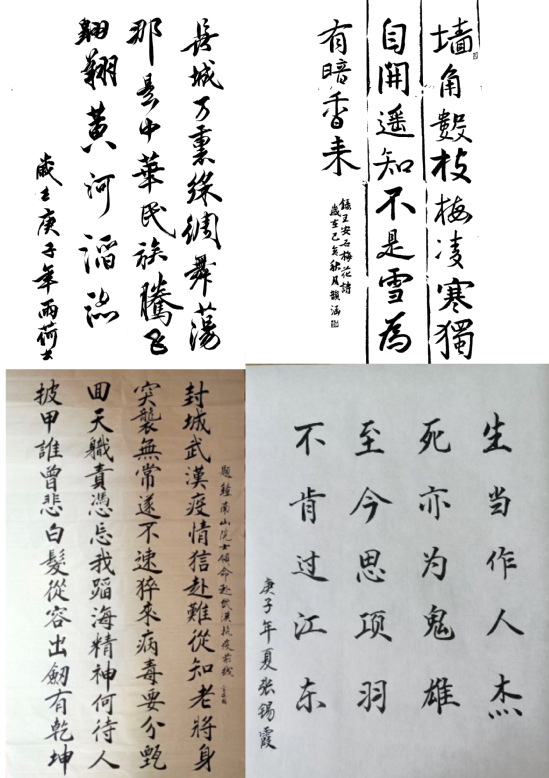 長城万裏綵綢舞蕩
那是中華民族騰飞
翱翔黄河滔
歲在庚子年雨荷书
墙角數枝梅凌寒獨
自開遥知不是雪為
有暗香来
錄王安石梅花詩
歲在己亥秋月韻涵
题鍾南山院士領命赴武漢抗疫前线
封城武漢疫情信赴難從知老將身
突襲無常遂不速猝來病毒要分甄
回天職責憑忘我蹈海精神何待人
披甲誰曾悲白髮從容出劒有乾坤
生当作人杰
死亦为鬼雄
至今思项羽
不肯过江东
庚子年夏张锡霞